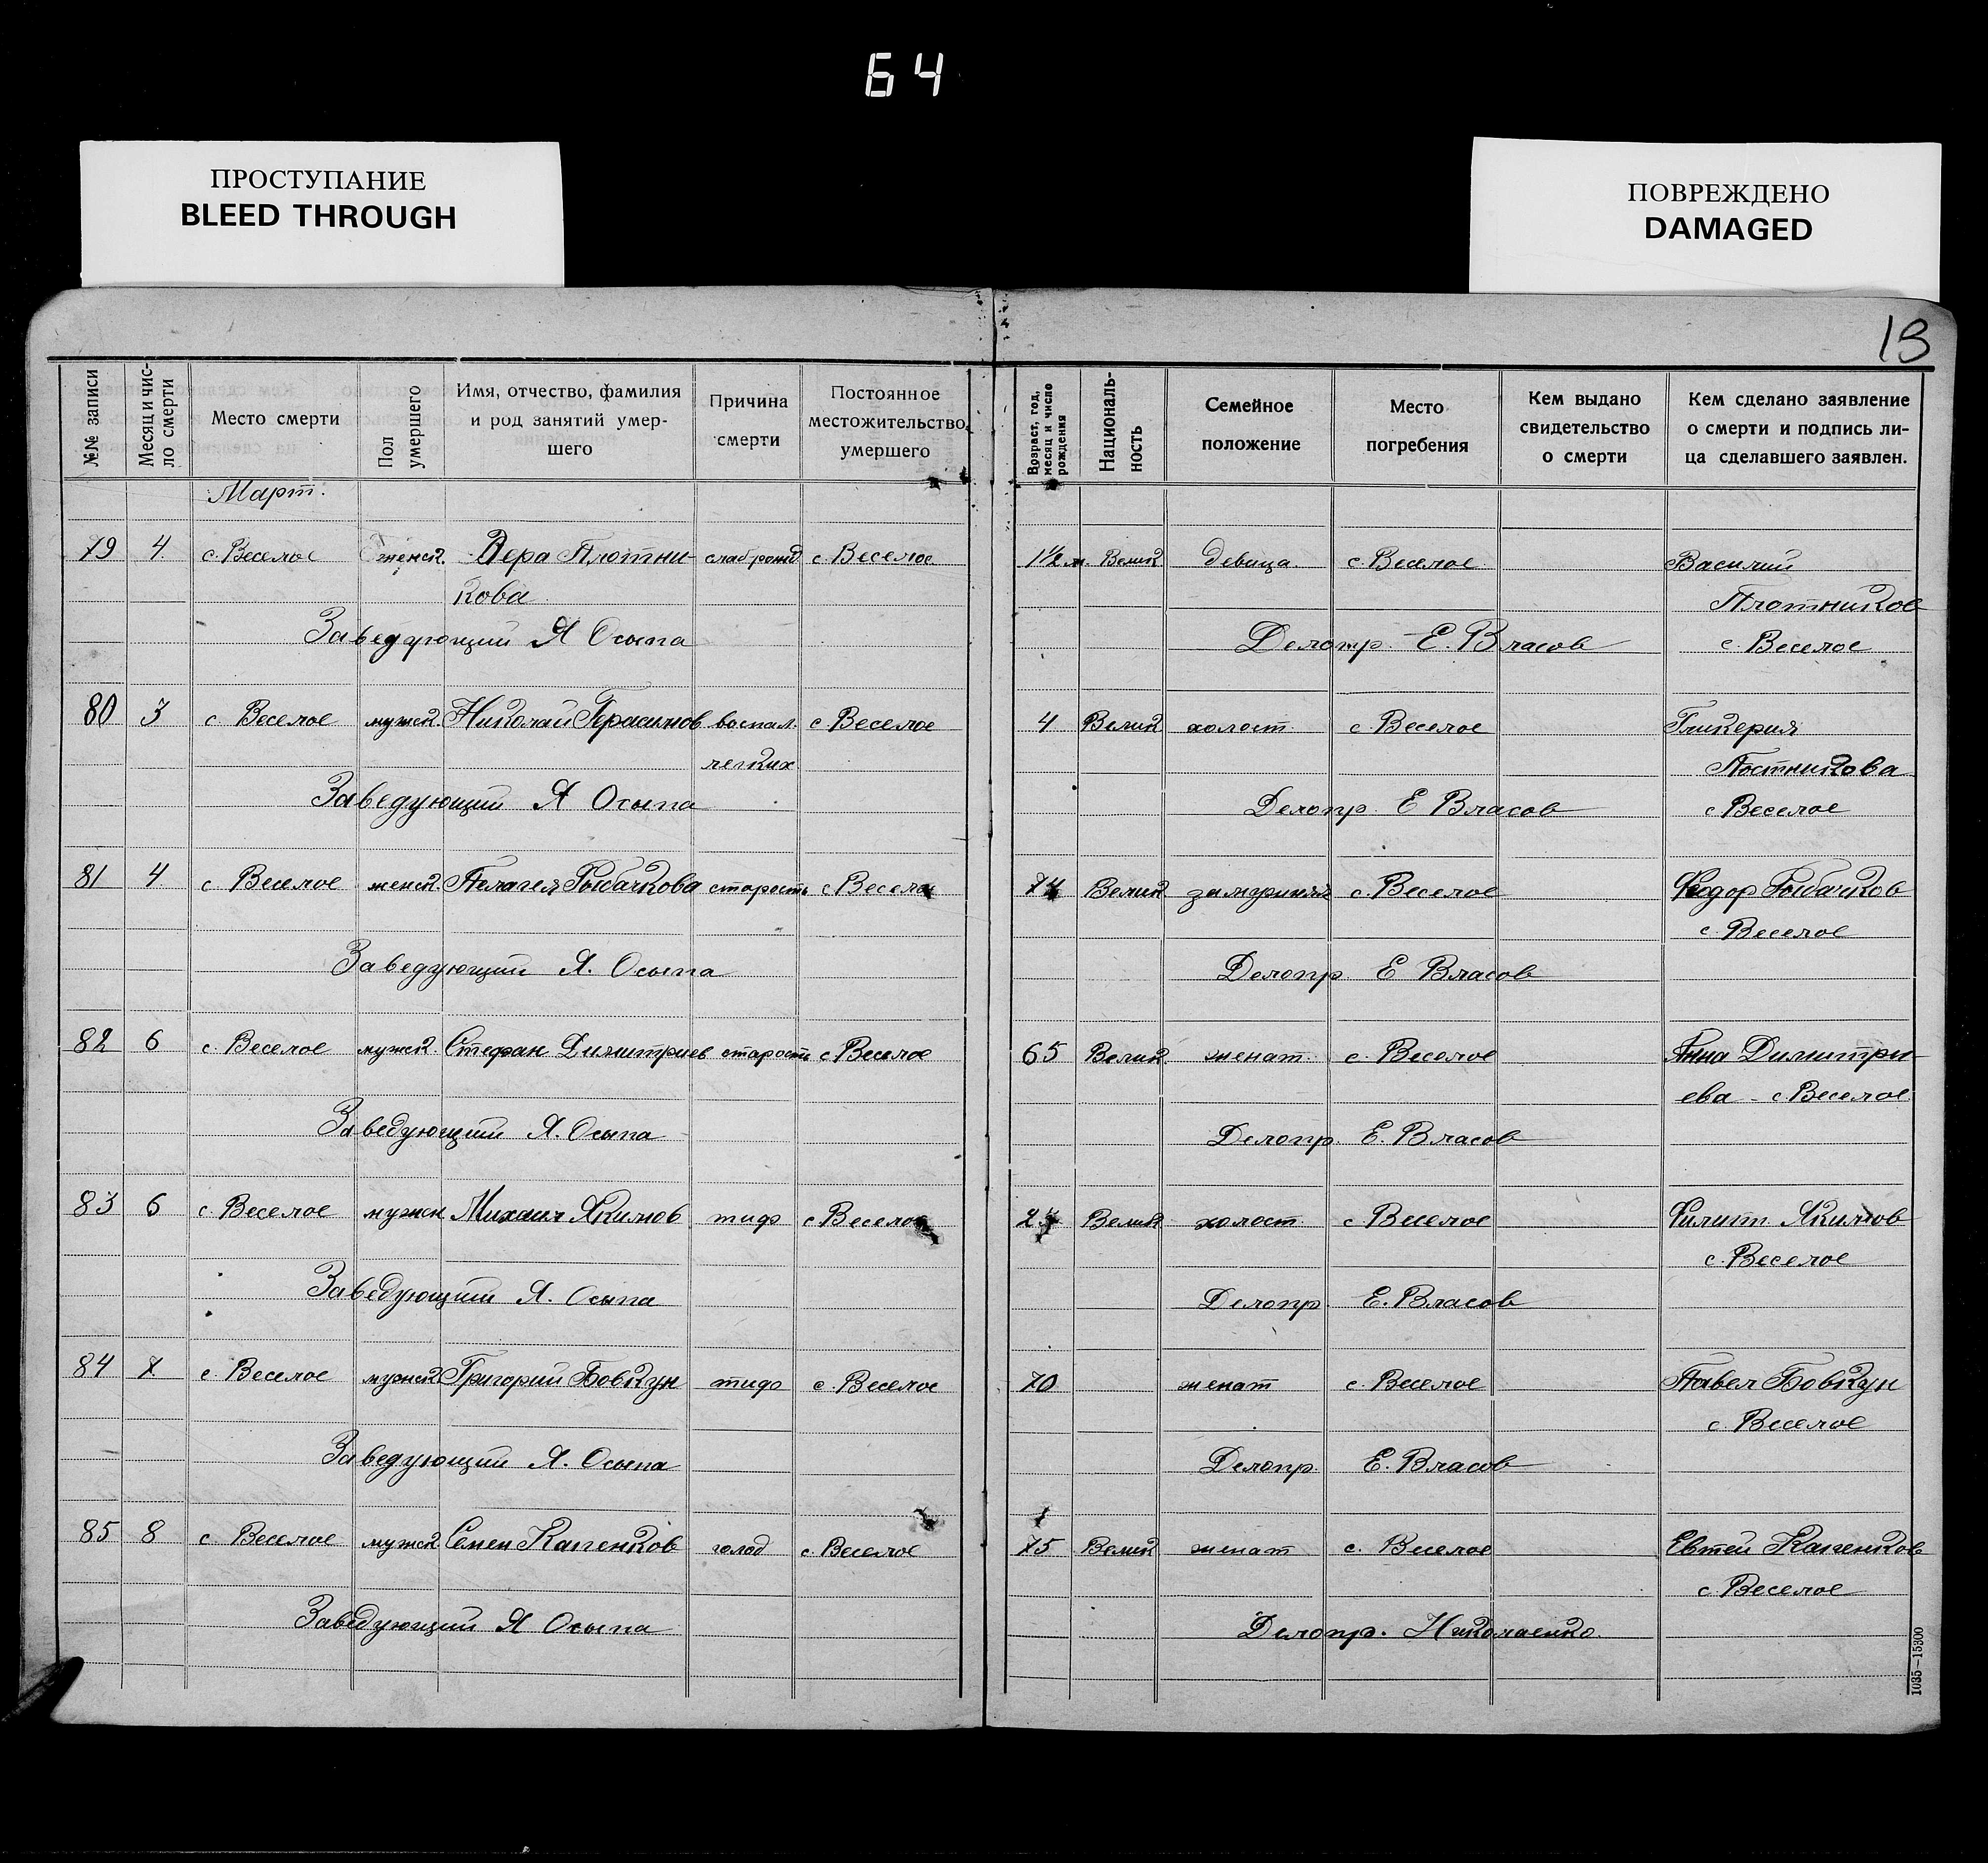 64
ПРОСТУПАНИЕ
BLEED THROUGH
ПОВРЕЖДЕНО
DAMAGED
13
№№ записи
Месяц и чис-
ло смерти
Место смерти
Пол
умершего
Имя, отчество, фамилия
и род занятий умер-
шего
Причина
смерти
Постоянное
местожительство
умершего
Возраст, год,
месяц и число
рождения
Националь-
ность
Семейное
положение
Место
погребения
Кем выдано
свидетельство
о смерти
Кем сделано заявление
о смерти и подпись ли-
ца сделавшего заявлен.
Март.
79 4. с. Веселое женск. Вера Плотни- слаб рожд с. Веселое 1½ м. Велик девица с. Веселое Василий
кова Плотников
Заведующий Я Осыпа Делопр. Е. Власов с Веселое
80 3 с Веселое мужск. Николай Герасимов воспал. с Веселое 4 Велик холост с. Веселое Гликерия
легких Постникова
Заведующий Я Осыпа Делопр. Е Власов с Веселое
81 4. с Веселое женск. Пелагея Рыбачкова старость с Веселое 74 Велик замужняя с. Веселое Феодор Рыбачков
с Веселое
Заведующий Я. Осыпа Делопр. Е Власов
82 6 с. Веселое мужск. Стефан Димитриев старость с Веселое 65 Велик женат с. Веселое Анна Димитри-
ева - с. Веселое
Заведующий Я. Осыпа Делопр. Е. Власов
83 6 с. Веселое мужск Михаил Якимов тиф с Веселое 24 Велик холост с Веселое Филип. Якимов
с. Веселое
Заведующий Я. Осыпа Делопр. Е. Власов
84 7 с. Веселое мужск Григорий Бовкун тиф с. Веселое 70 женат с. Веселое Павел Бовкун
с. Веселое
Заведующий Я. Осыпа Делопр. Е. Власов
85 8 с. Веселое мужск Семен Капенков голод с. Веселое 75 Велик женат с. Веселое Евтей Капенков
с. Веселое
Заведующий Я Осыпа Делопр. Николаенко.
1035—15300